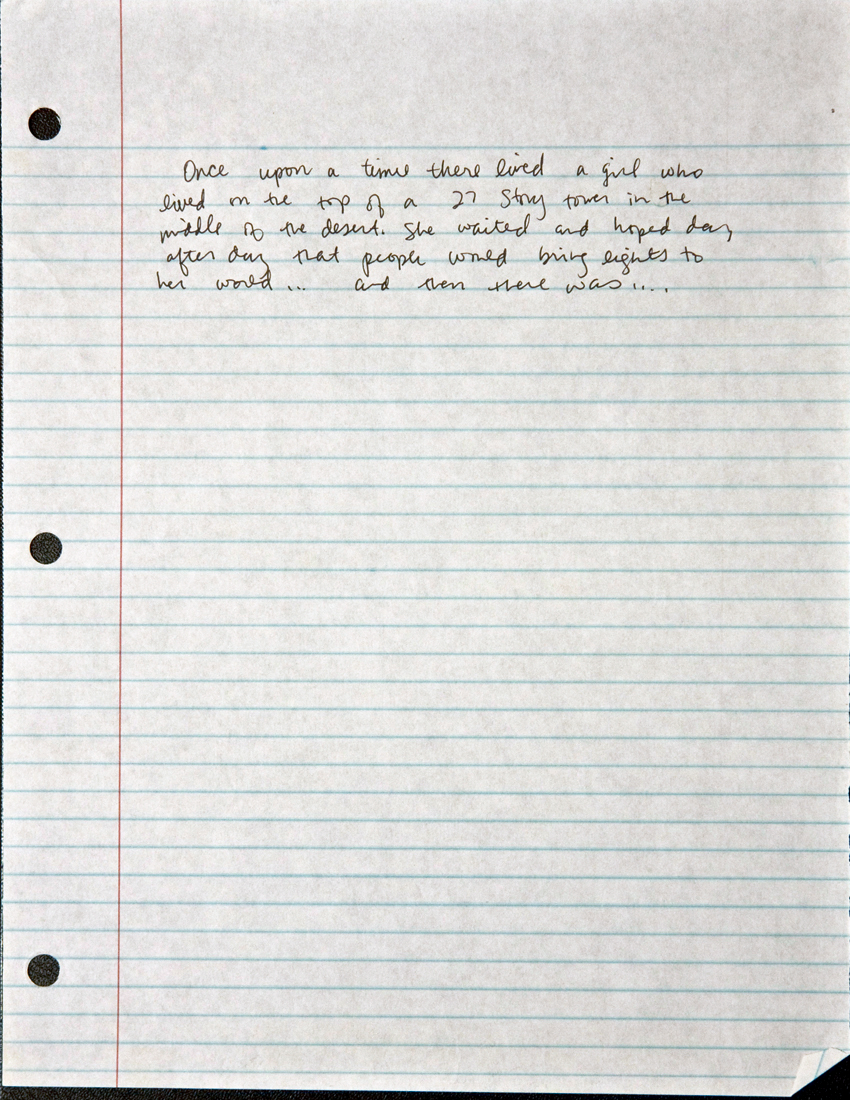 Once upon a time there lived a girl who
lived on the top of a 27 Story tower in the
middle of the desert. She waited and hoped day
after day that people would bring lights to
her world... and then there was....